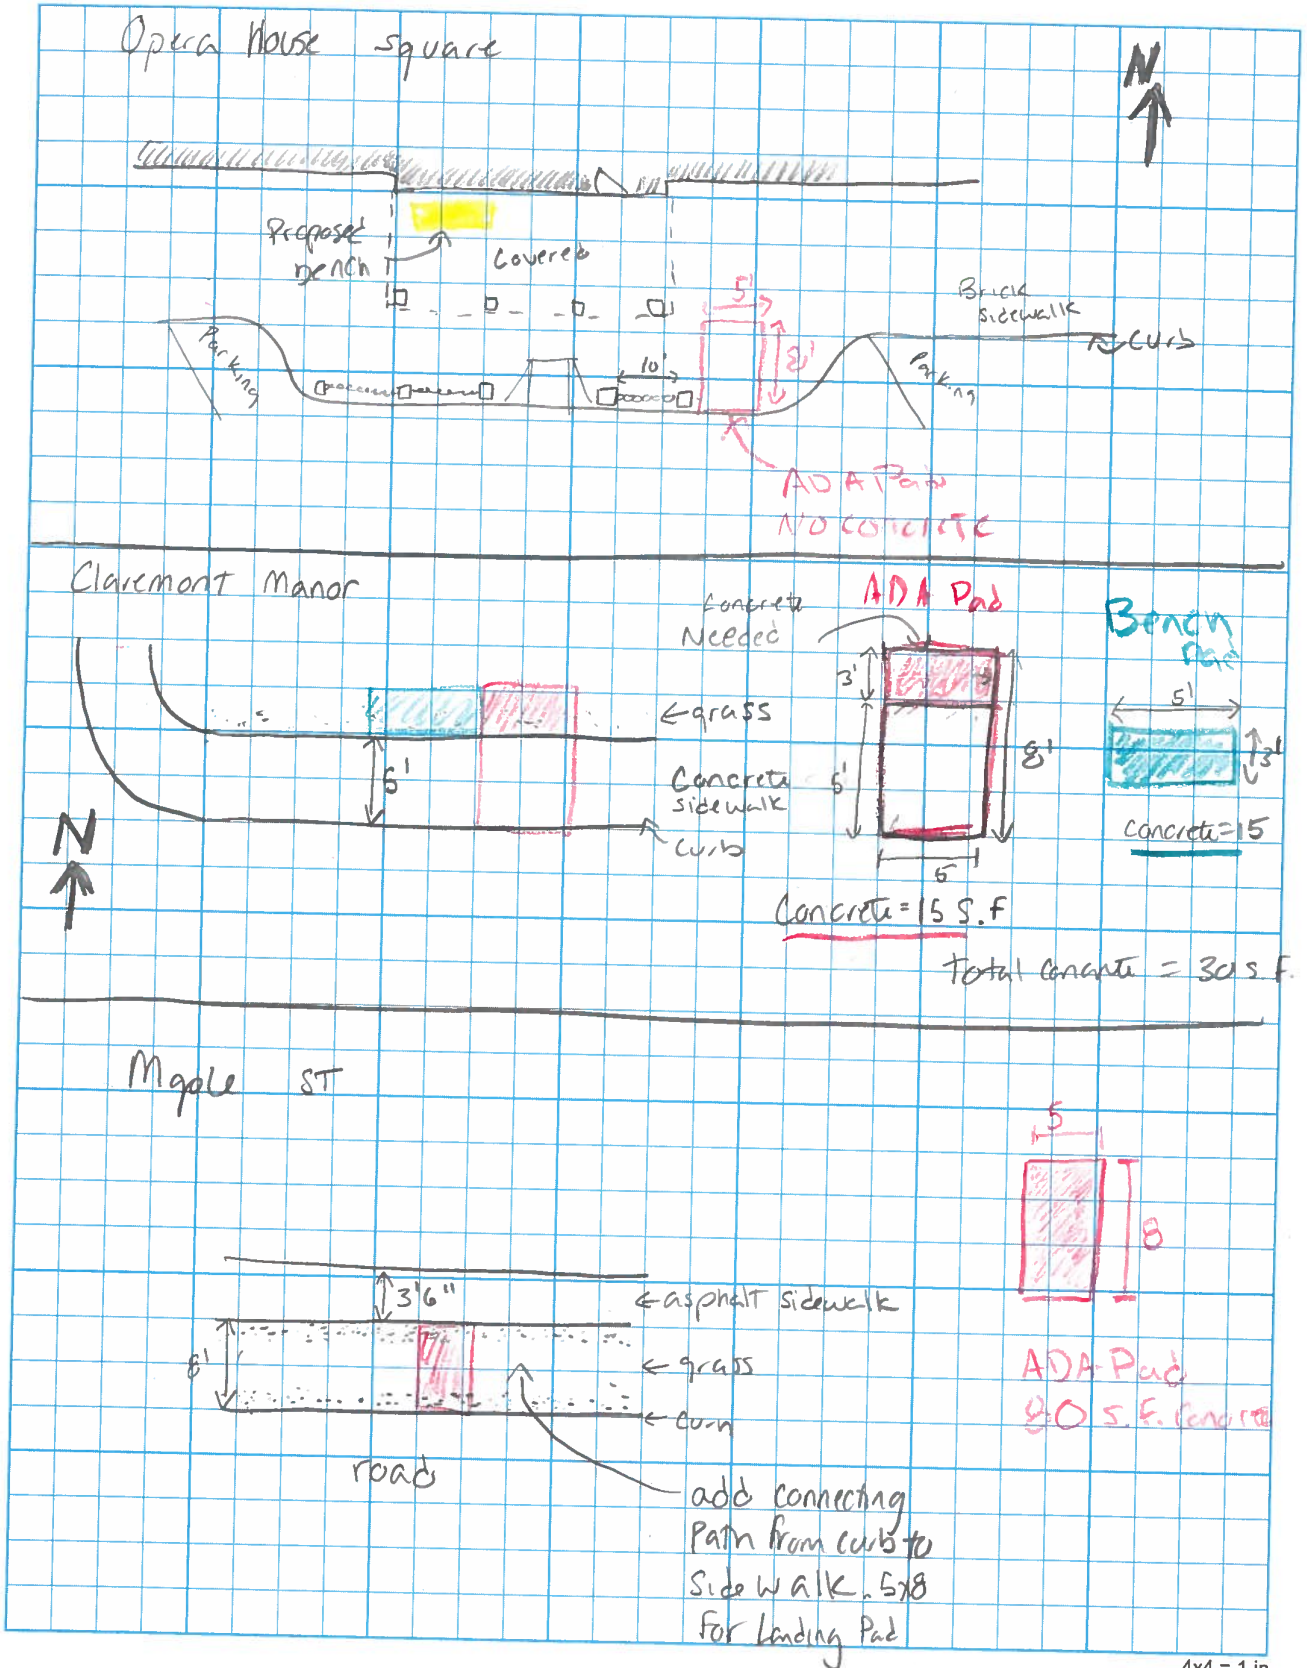 Opera House Square
N
Proposed
bench
Covered
5'
8'
Brick
sidewalk
curb
Parking
10'
Parking
ADA Pad
NO CONCRETE
Claremont Manor
Concrete
Needed
ADA Pad
Bench
Pad
3'
5'
grass
5'
8'
3'
Concrete
sidewalk
curb
concrete=15
N
5
Concrete=15 S.F
Total concrete = 30 S.F.
Maple ST
5
8
3'6"
asphalt sidewalk
8'
grass
curb
ADA Pad
S.F. concrete
road
add connecting
Path from curb to
Sidewalk. 5x8
For Landing Pad
4x4 = 1 in